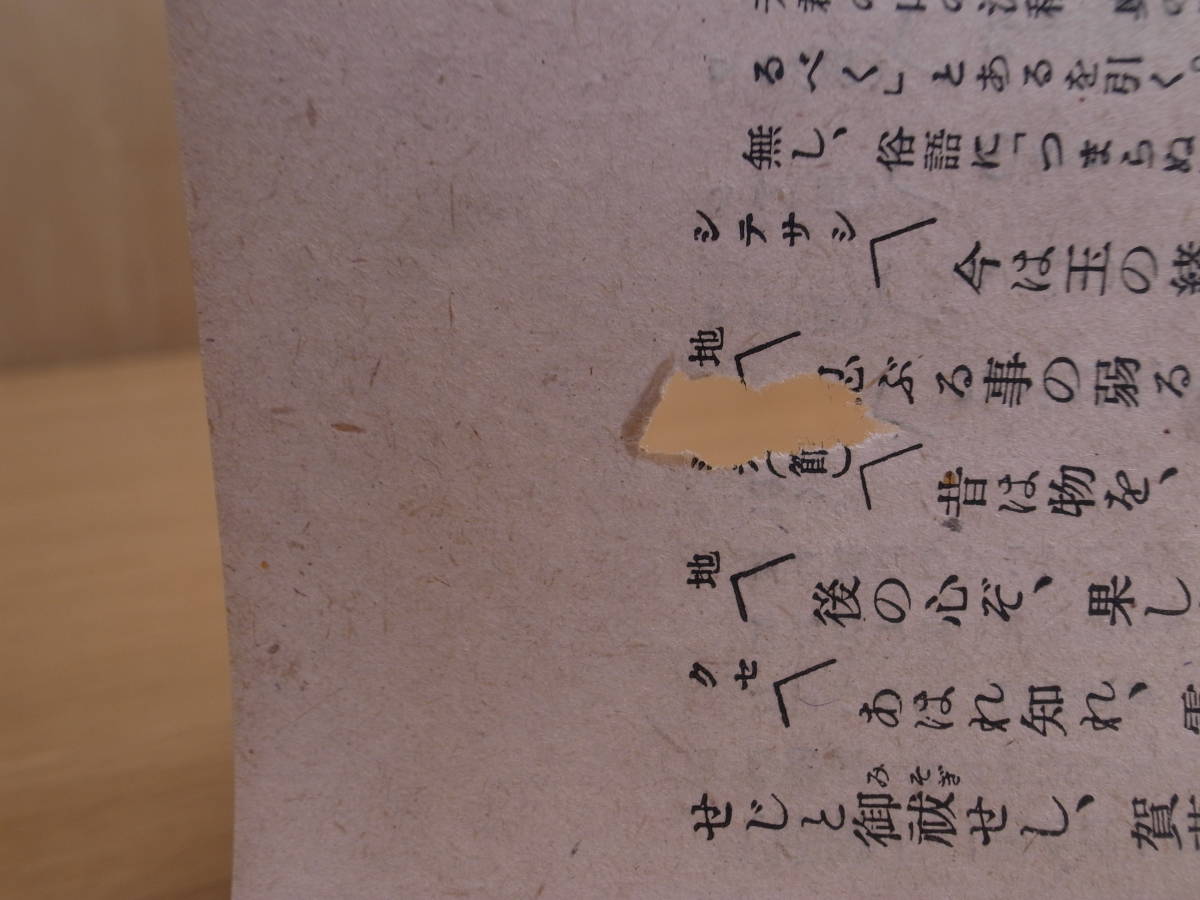 るべく」とあるを引く。
無し、俗語に「つまらぬ
シテサシ
今は玉の緒
地
ぶる事の弱る
(観)
昔は物を、
地
後の心ぞ、果し
クセ
あはれ知れ、
せじと御祓せし、賀
みそぎ